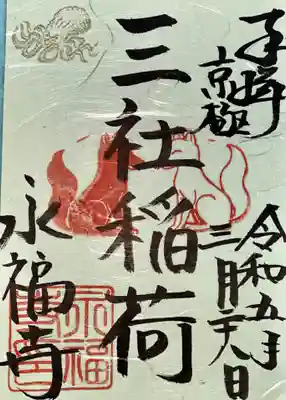 奉拝
京極
三社稲荷
令和五年
三月
日
永福寺
永福